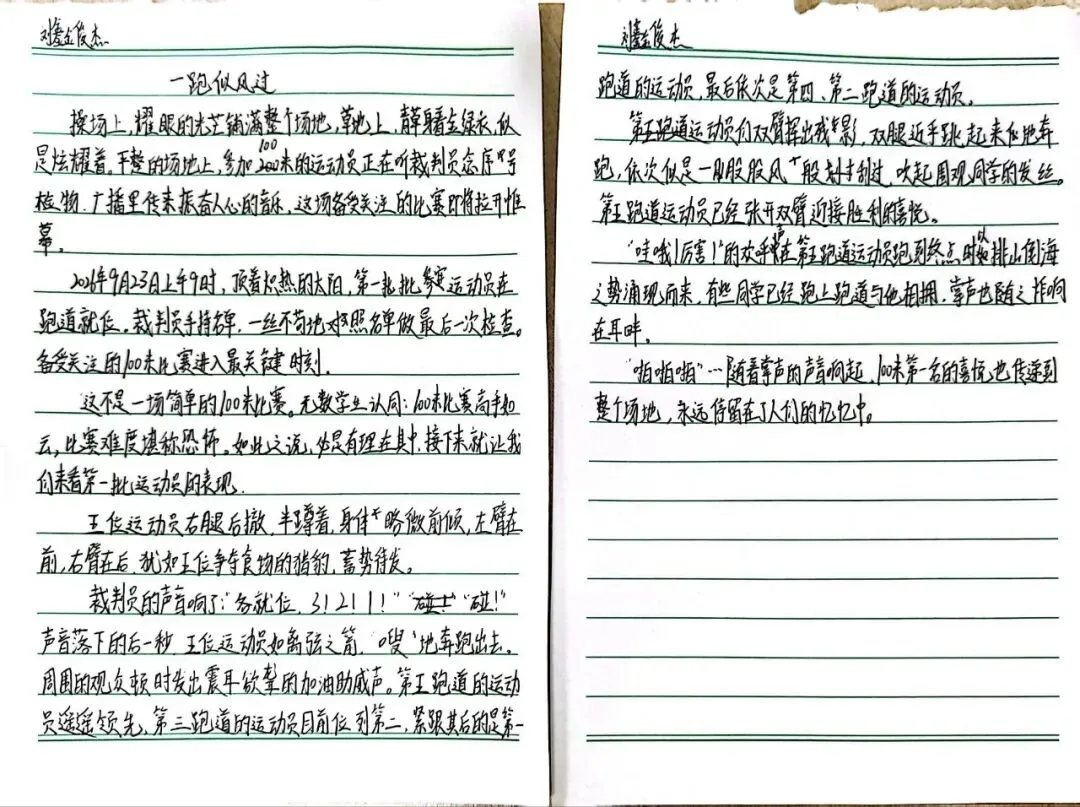 刘鎏金俊杰
一跑似风过
操场上，耀眼的光芒铺满整个场地，草地上，青草身着金绿衣，似
是炫耀着。平整的场地上，参加100米的运动员正在听裁判员念序号
植物，广播里传来振奋人心的音乐，这场备受关注的比赛即将拉开帷
幕。
2026年9月23日上午9时，顶着炽热的太阳，第一批批参赛运动员在
跑道就位。裁判员手持名单，一丝不苟地对照名单做最后一次检查。
备受关注的100米比赛进入最关键时刻.
这不是一场简单的100米比赛。无数学生认同：100米比赛高手如
云，比赛难度堪称恐怖。如此之说，必是有理在其中，接下来就让我
们来看第一批运动员的表现.
五位运动员右腿后撤，半蹲着，身体略微前倾，左臂在
前，右臂在后，犹如五位争夺食物的猎豹，蓄势待发。
裁判员的声音响了："各就位，3！2！1！""碰！"
声音落下的后一秒，五位运动员如离弦之箭，"嗖"地奔跑出去。
周围的观众顿时发出震耳欲聋的加油助威声。第五跑道的运动
员遥遥领先，第三跑道的运动员目前位列第二，紧跟其后的是第一
刘鎏金俊杰
跑道的运动员，最后依次是第四、第二跑道的运动员。
第五跑道运动员们双臂挥出残影，双腿近乎跳起来似地奔
跑，依次似是一股股风一般刮过，吹起周观同学的发丝。
第五跑道运动员已经张开双臂迎接胜利的喜悦。
"哇哦！厉害！"的欢呼声在第五跑道运动员跑到终点时以排山倒海
之势涌现而来，有些同学已经跑上跑道与他相拥，掌声也随之作响
在耳畔。
"啪啪啪"…随着掌声的声音响起，100米第一名的喜悦也传递到
整个场地，永远停留在了人们的忆忆中。